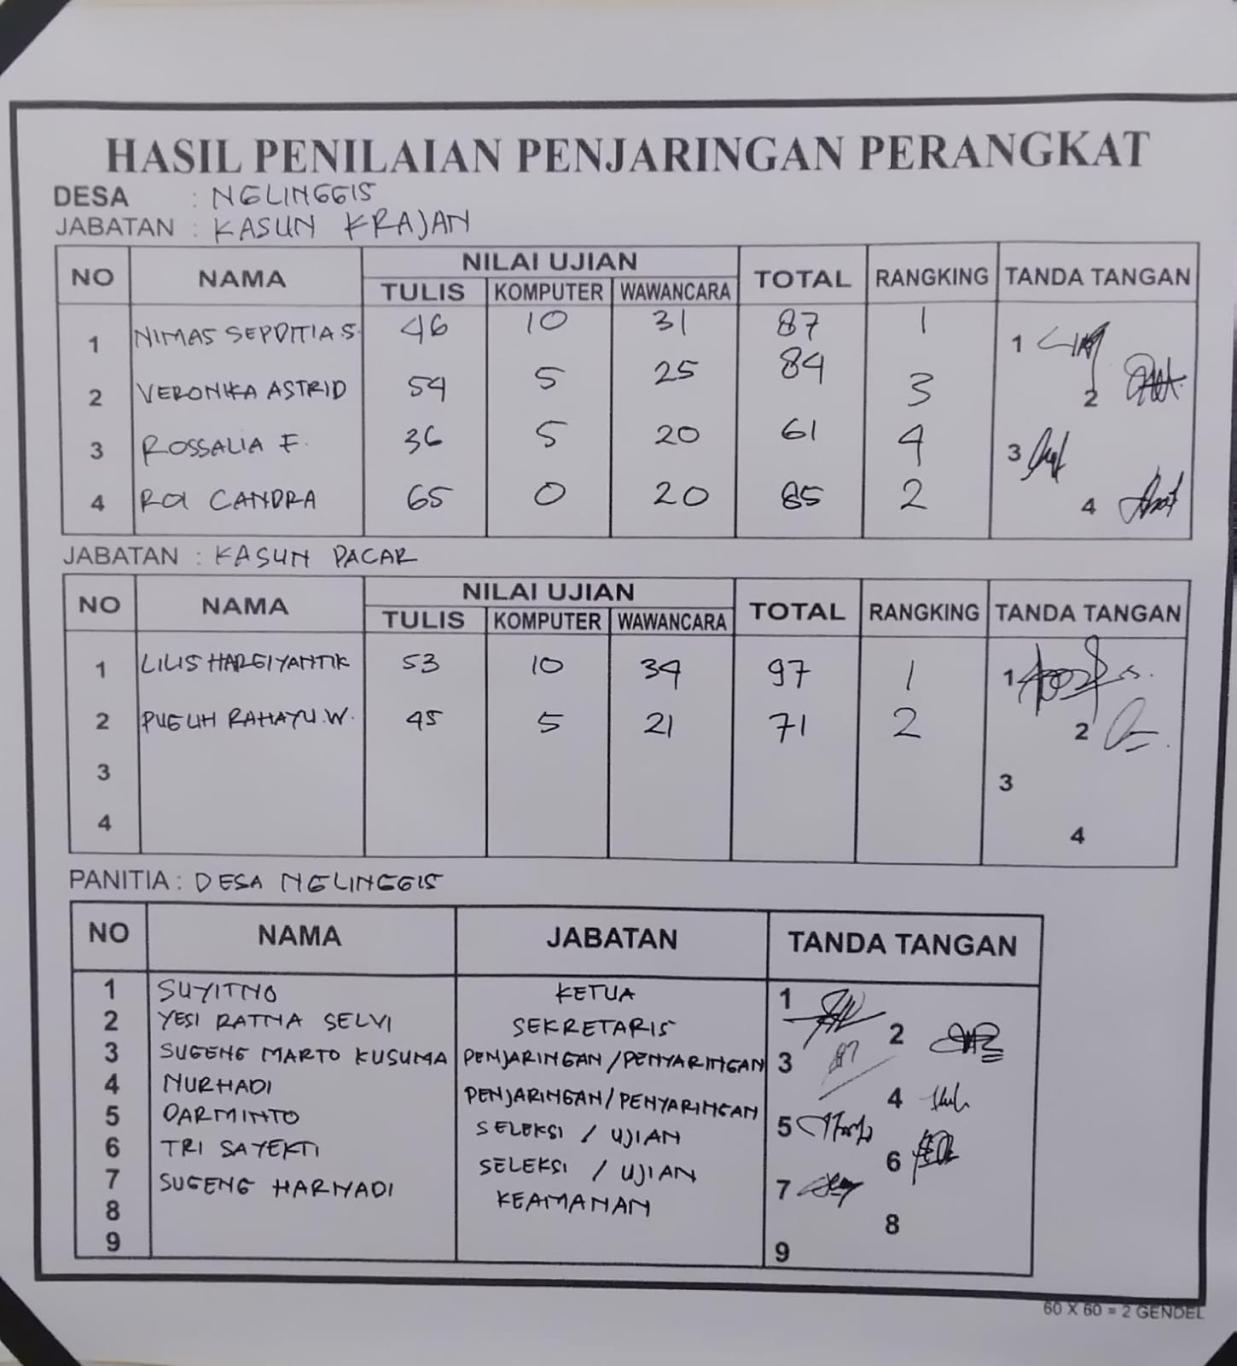 HASIL PENILAIAN PENJARINGAN PERANGKAT
DESA : NGLINGGIS
JABATAN : KASUN KRAJAN
NO NAMA NILAI UJIAN TOTAL RANGKING TANDA TANGAN
TULIS KOMPUTER WAWANCARA
1 NIMAS SEPDITIA S. 46 10 31 87 1 1
2 VERONIKA ASTRID 54 5 25 84 3 2
3 ROSSALIA F. 36 5 20 61 4 3
4 ROI CANDRA 65 0 20 85 2 4
JABATAN : KASUN PACAR
NO NAMA NILAI UJIAN TOTAL RANGKING TANDA TANGAN
TULIS KOMPUTER WAWANCARA
1 LILIS HARGIYANTIK 53 10 34 97 1 1
2 PUGUH RAHAYU.W. 45 5 21 71 2 2
3 3
4 4
PANITIA : DESA NGLINGGIS
NO NAMA JABATAN TANDA TANGAN
1 SUYITNO KETUA 1
2 YESI RATNA SELVI SEKRETARIS 2
3 SUGENG MARTO KUSUMA PENJARINGAN/PENYARINGAN 3
4 NURHADI PENJARINGAN/PENYARINGAN 4
5 DARMINTO SELEKSI / UJIAN 5
6 TRI SAYEKTI SELEKSI / UJIAN 6
7 SUGENG HARYADI KEAMANAN 7
8 8
9 9
60 X 60 = 2 GENDEL